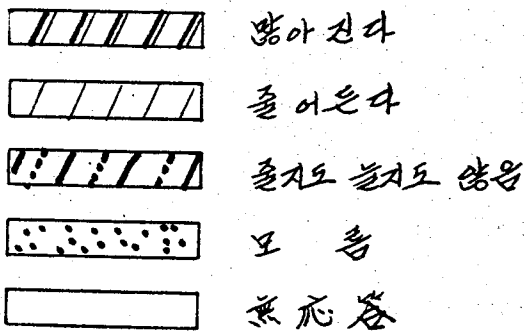 많아진다
줄어든다
줄지도 늘지도 않음
모름
無応答